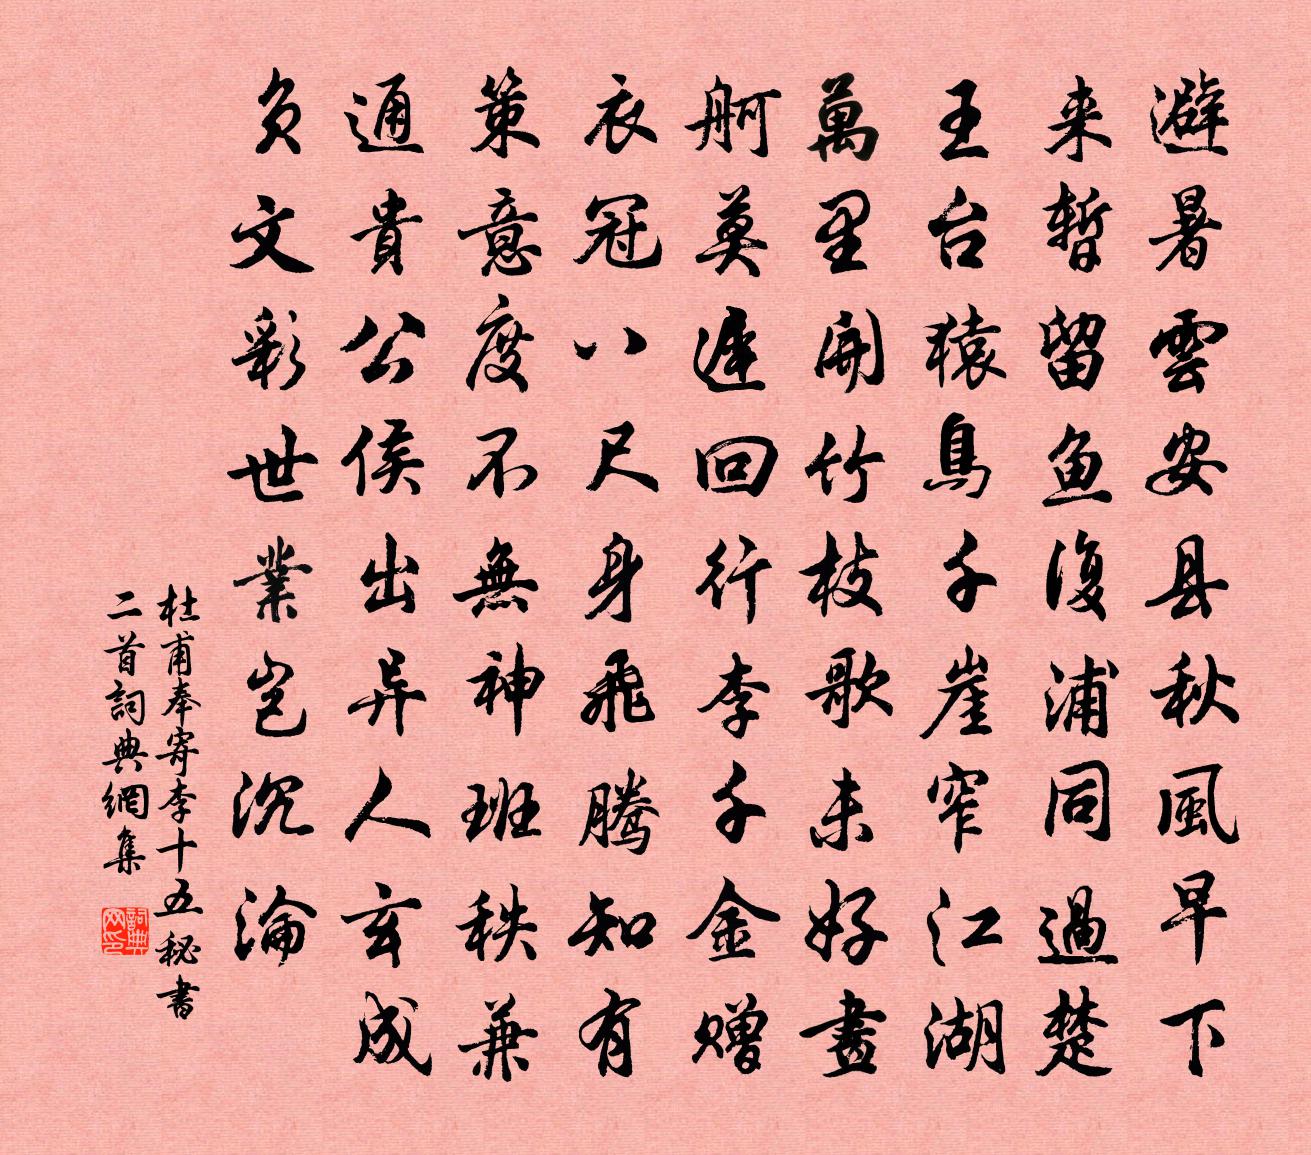 避暑雲安县秋風早下
来暫留鱼復浦同過楚
王台猿鳥千崖窄江湖
萬里開竹枝歌未好畫
舸莫遲回行李千金赠
衣冠八尺身飛騰知有
策意度不無神班秩兼
通貴公侯出异人玄成
负文彩世業岂沉淪
杜甫奉寄李十五秘書
二首詞典網集
詞典
网印